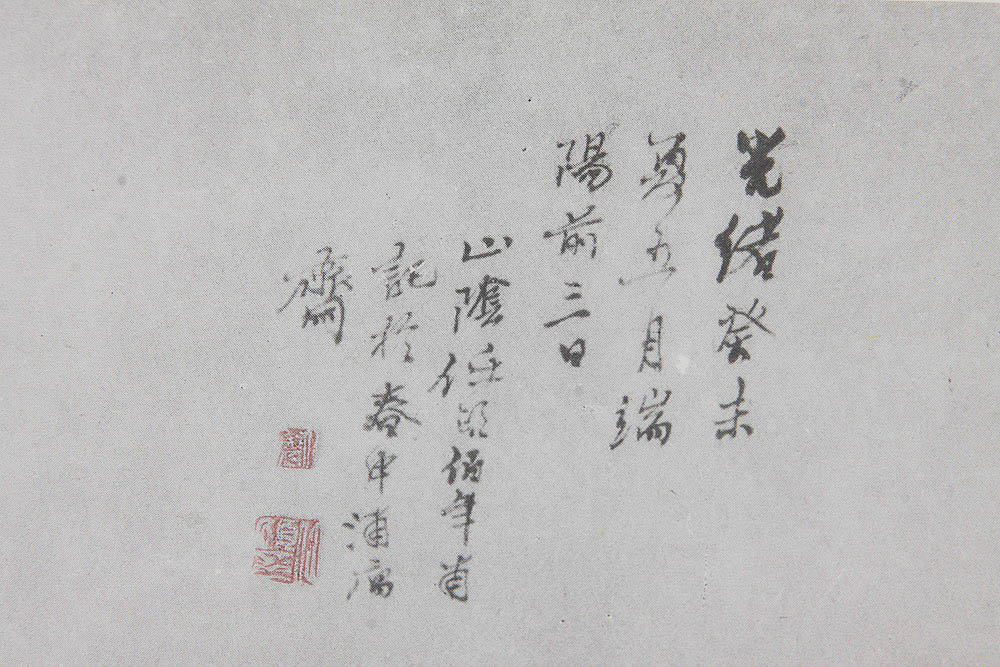 光緒癸未
夏五月端
陽前三日
山陰任頤伯年甫
記於春申浦寓
齋